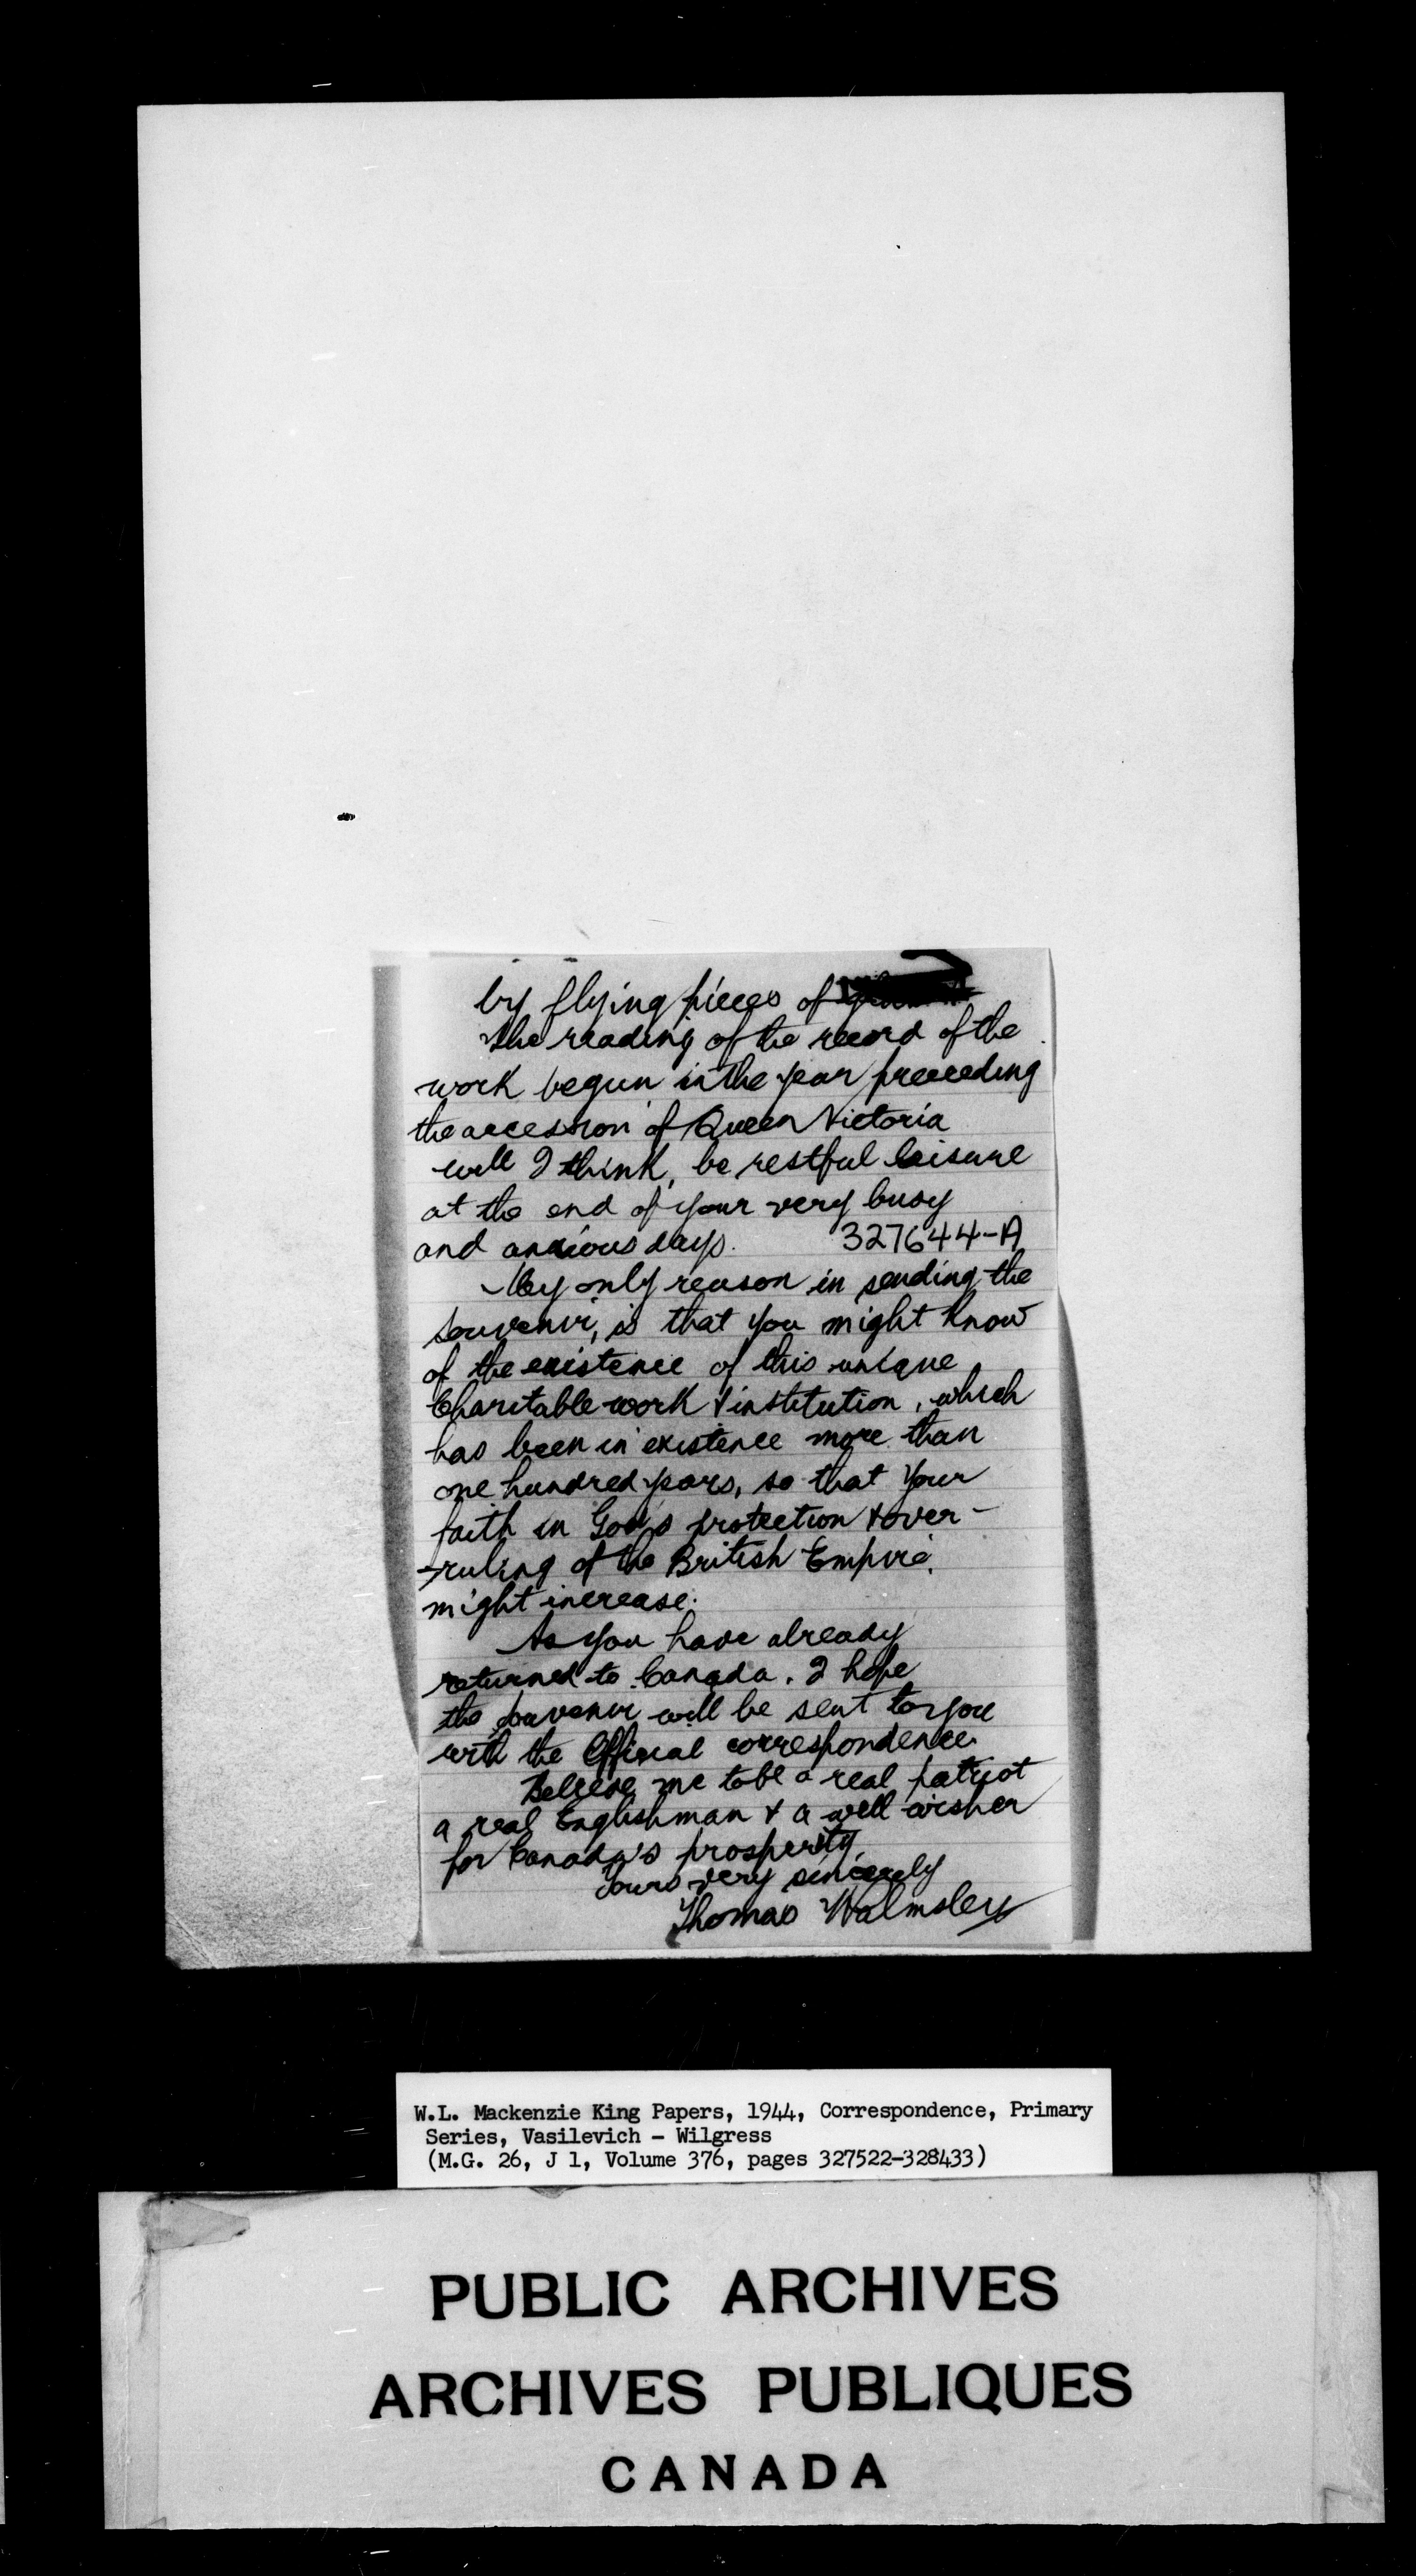 by flying pieces of
The reading of the record of the
work begun in the year preceeding
the accession of Queen Victoria
will I think, be restful leisure
at the end of your very busy
and anxious days. 327644-A
My only reason in sending the
souvenir, is that you might know
of the existence of this unique
Charitable work & institution, which
has been in existence more than
one hundred years, so that your
faith in God's protection & over-
-ruling of the British Empire,
might increase.
As you have already
returned to Canada. I hope
the souvenir will be sent to you
with the Official correspondence.
Believe me to be a real patriot
a real Englishman & a well wisher
for Canada's prosperity.
Yours very sincerely
Thomas Walmsley
W.L. Mackenzie King Papers, 1944, Correspondence, Primary
Series, Vasilevich - Wilgress
(M.G. 26, J 1, Volume 376, pages 327522-328433)
PUBLIC ARCHIVES
ARCHIVES PUBLIQUES
CANADA